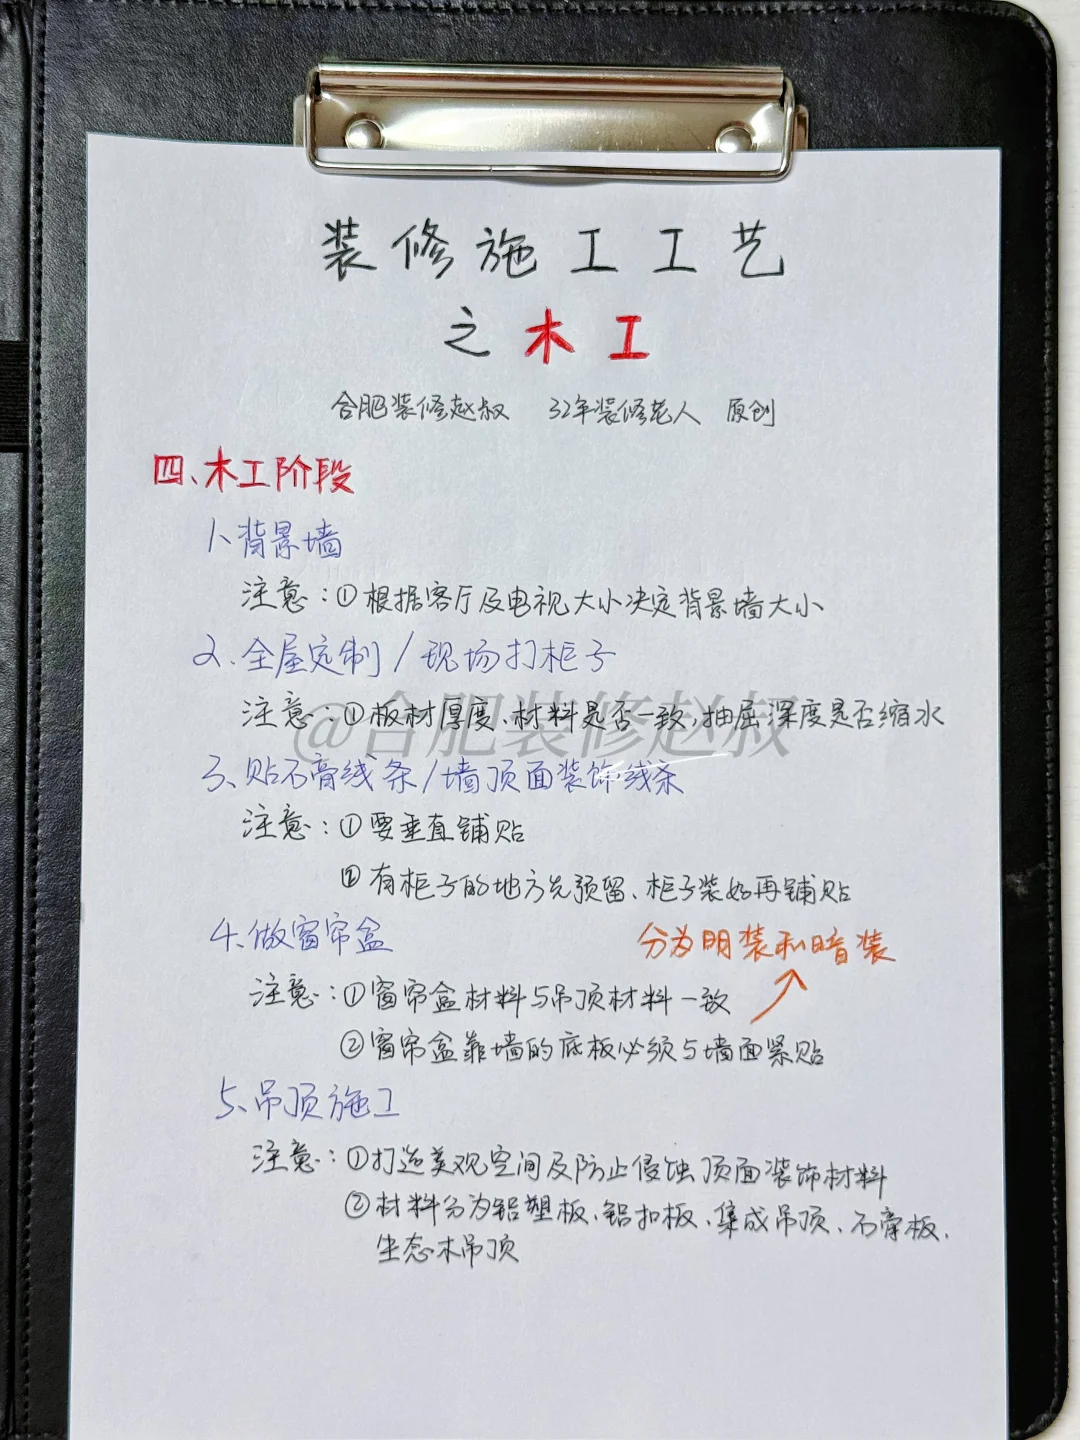 装修施工工艺
之木工
合肥装修赵叔 32年装修老人 原创
四、木工阶段
1、背景墙
注意：①根据客厅及电视大小决定背景墙大小
2、全屋定制/现场打柜子
注意：①板材厚度、材料是否一致，抽屉深度是否缩水
@合肥装修赵叔
3、贴石膏线条/墙顶面装饰线条
注意：①要垂直铺贴
②有柜子的地方先预留、柜子装好再铺贴
4、做窗帘盒
分为明装和暗装
注意：①窗帘盒材料与吊顶材料一致
②窗帘盒靠墙的底板必须与墙面紧贴
5、吊顶施工
注意：①打造美观空间及防止侵蚀顶面装饰材料
②材料分为铝塑板、铝扣板、集成吊顶、石膏板、
生态木吊顶